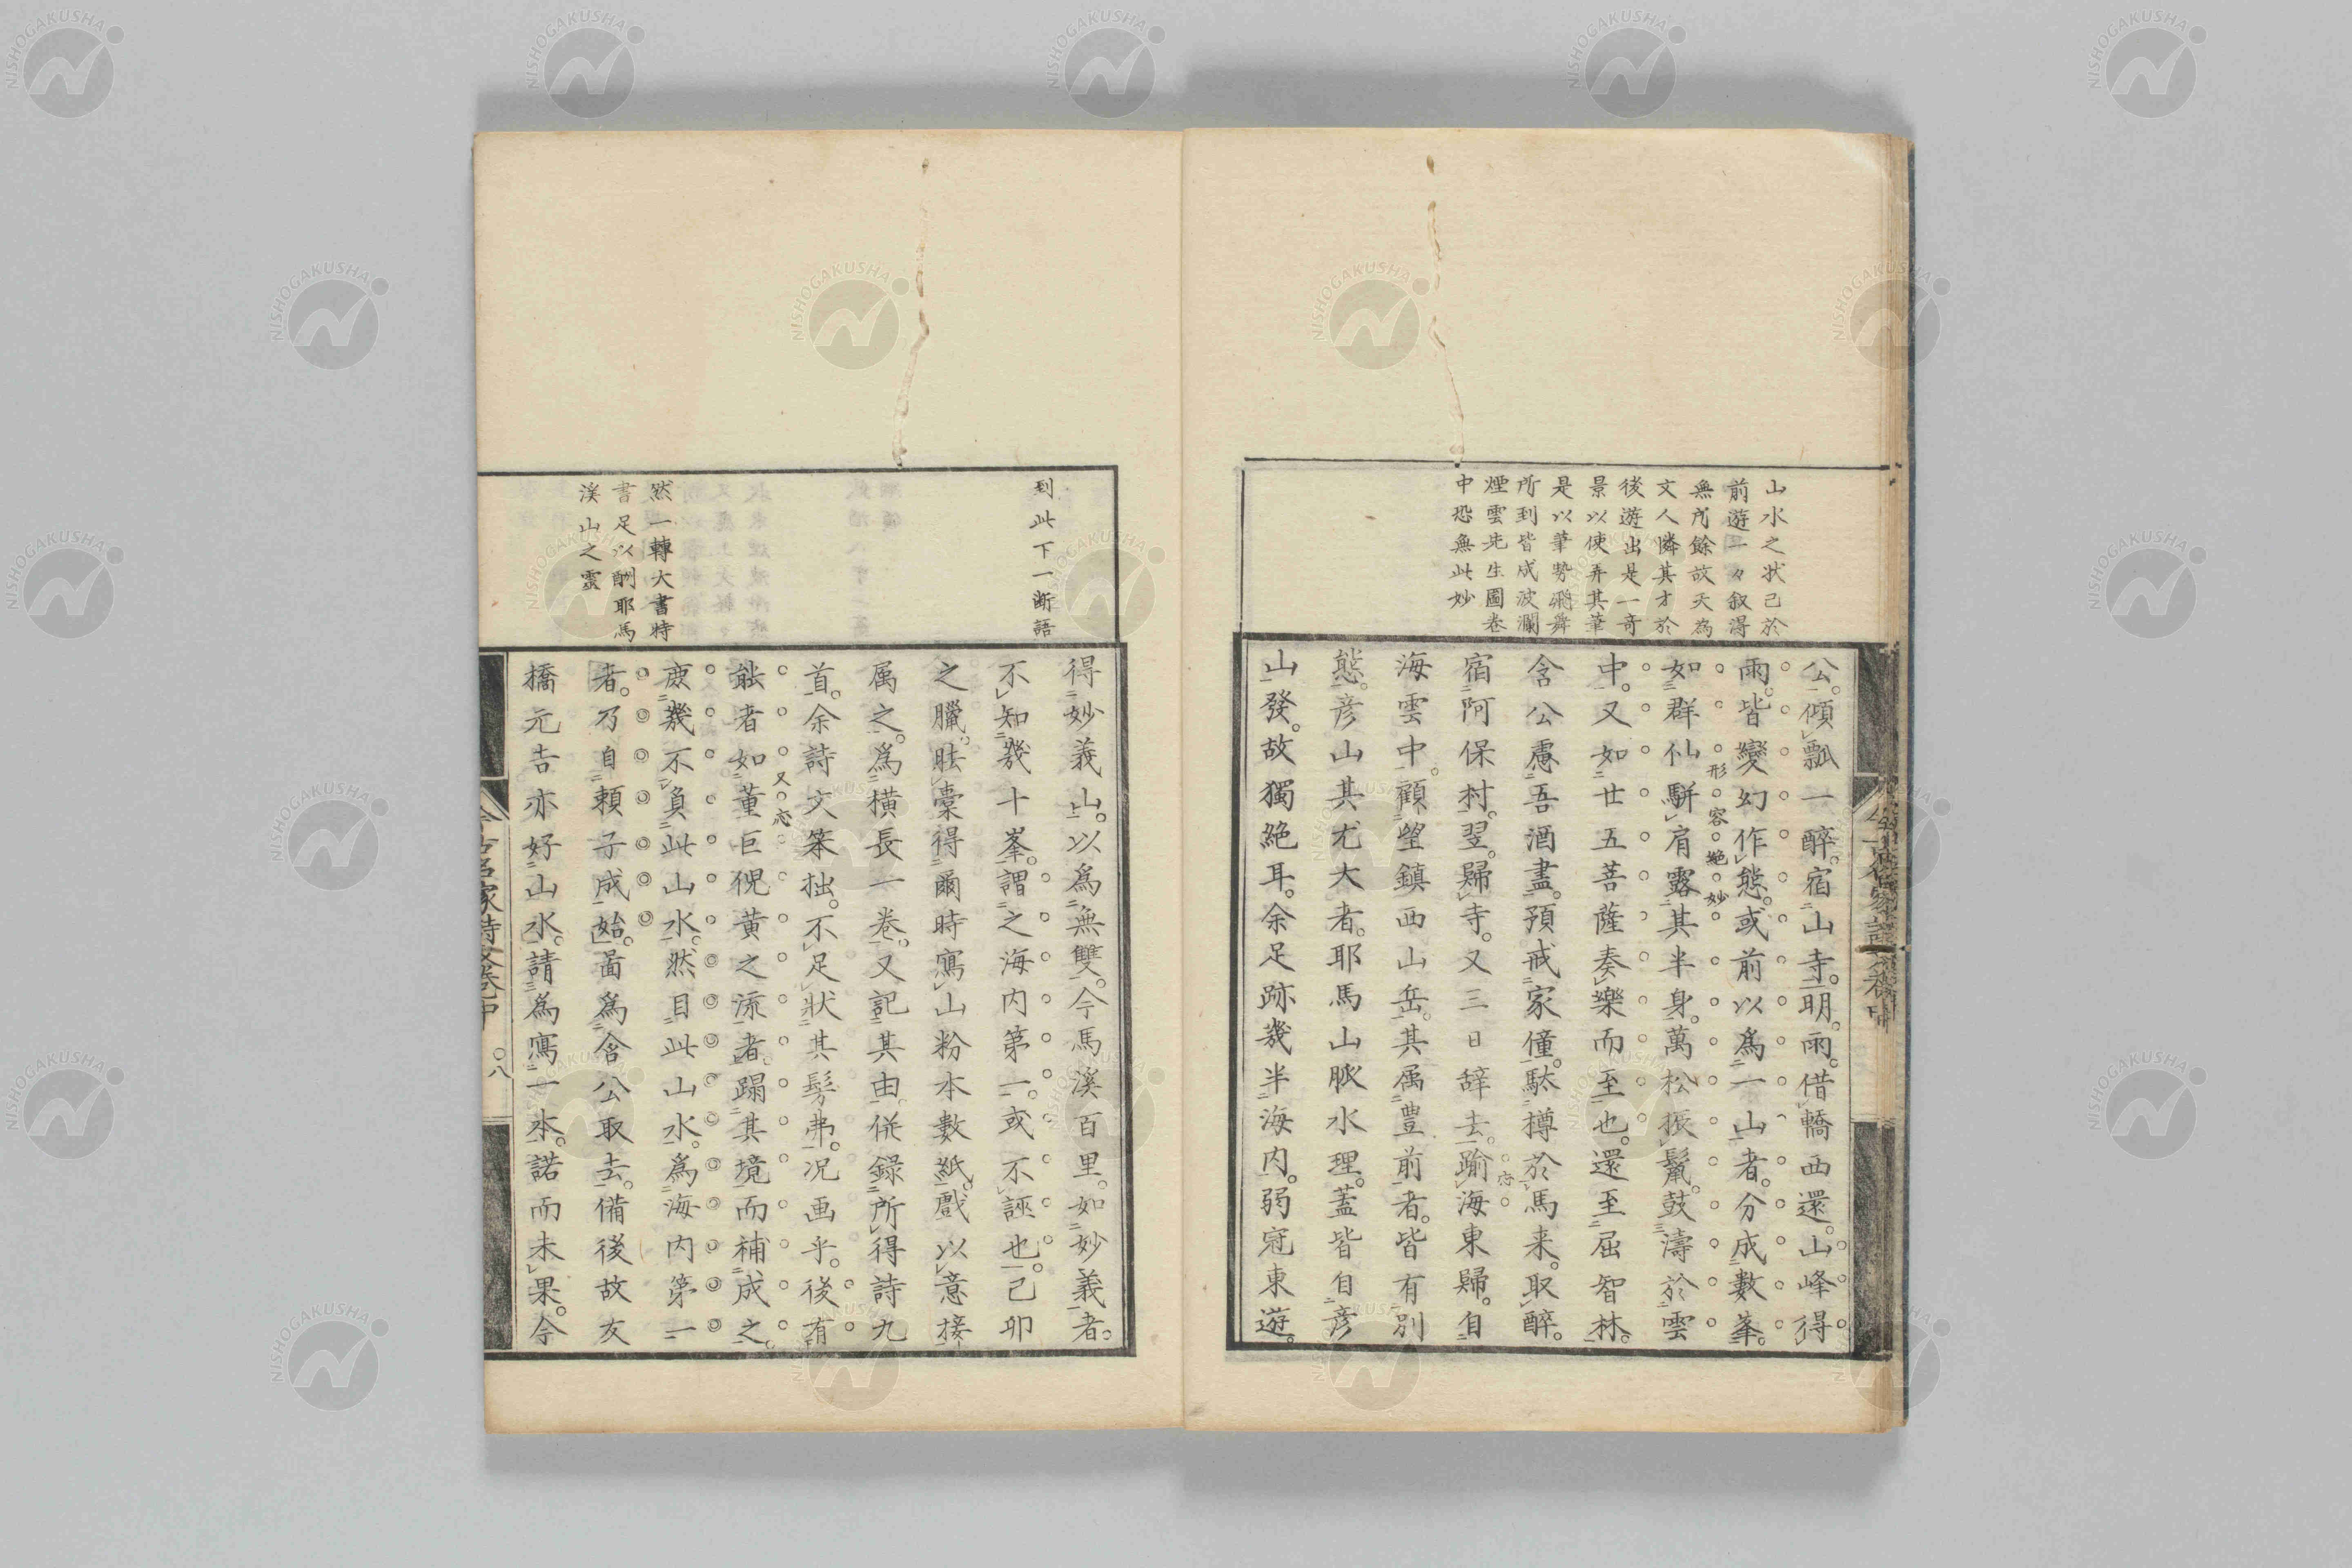 山水之狀已於
前遊一々叙得
無所餘故天為
文人憐其才於
後遊出是一奇
景以使弄其筆
是以筆勢飛舞
所到皆成波瀾
煙雲先生圖卷
中恐無此妙
公。傾瓢一醉。宿山寺。明。雨。借轎西還。山峰得
雨。皆變幻作態。或前以為一山者。分成數峯。
形容絶妙
如群仙駢肩露其半身。萬松振鬣。鼓濤於雲
中。又如廿五菩薩奏樂而至也。還至屈智林。
含公慮吾酒盡。預戒家僮。駄樽於馬来。取醉。
宿阿保村。翌。歸寺。又三日辞去。踰海東歸。自
海雲中。顧望鎮西山岳。其属豊前者。皆有別
態。彦山其尤大者。耶馬山脉水理。蓋皆自彦
山發。故獨絶耳。余足跡幾半海内。弱冠東遊。
到此下一断語
然一轉大書特
書足以酬耶馬
溪山之靈
得妙義山。以為無雙。今馬溪百里。如妙義者。
不知幾十峯。謂之海内第一。或不誣也。己卯
之臘。胠槖得爾時寫山粉本數紙。戲以意接
属之。為横長一卷。又記其由。併錄所得詩九
首。余詩文笨拙。不足狀其髣弗。况画乎。後有
又应
能者如董巨倪黄之流者。蹋其境而補成之。
庶幾不負此山水。然目此山水。為海内第一
者。乃自頼子成始。啚為含公取去。備後故友
橋元吉亦好山水。請為寫一本。諾而未果。今
今古名家詩文卷中
八
NISHOGAKUSHA